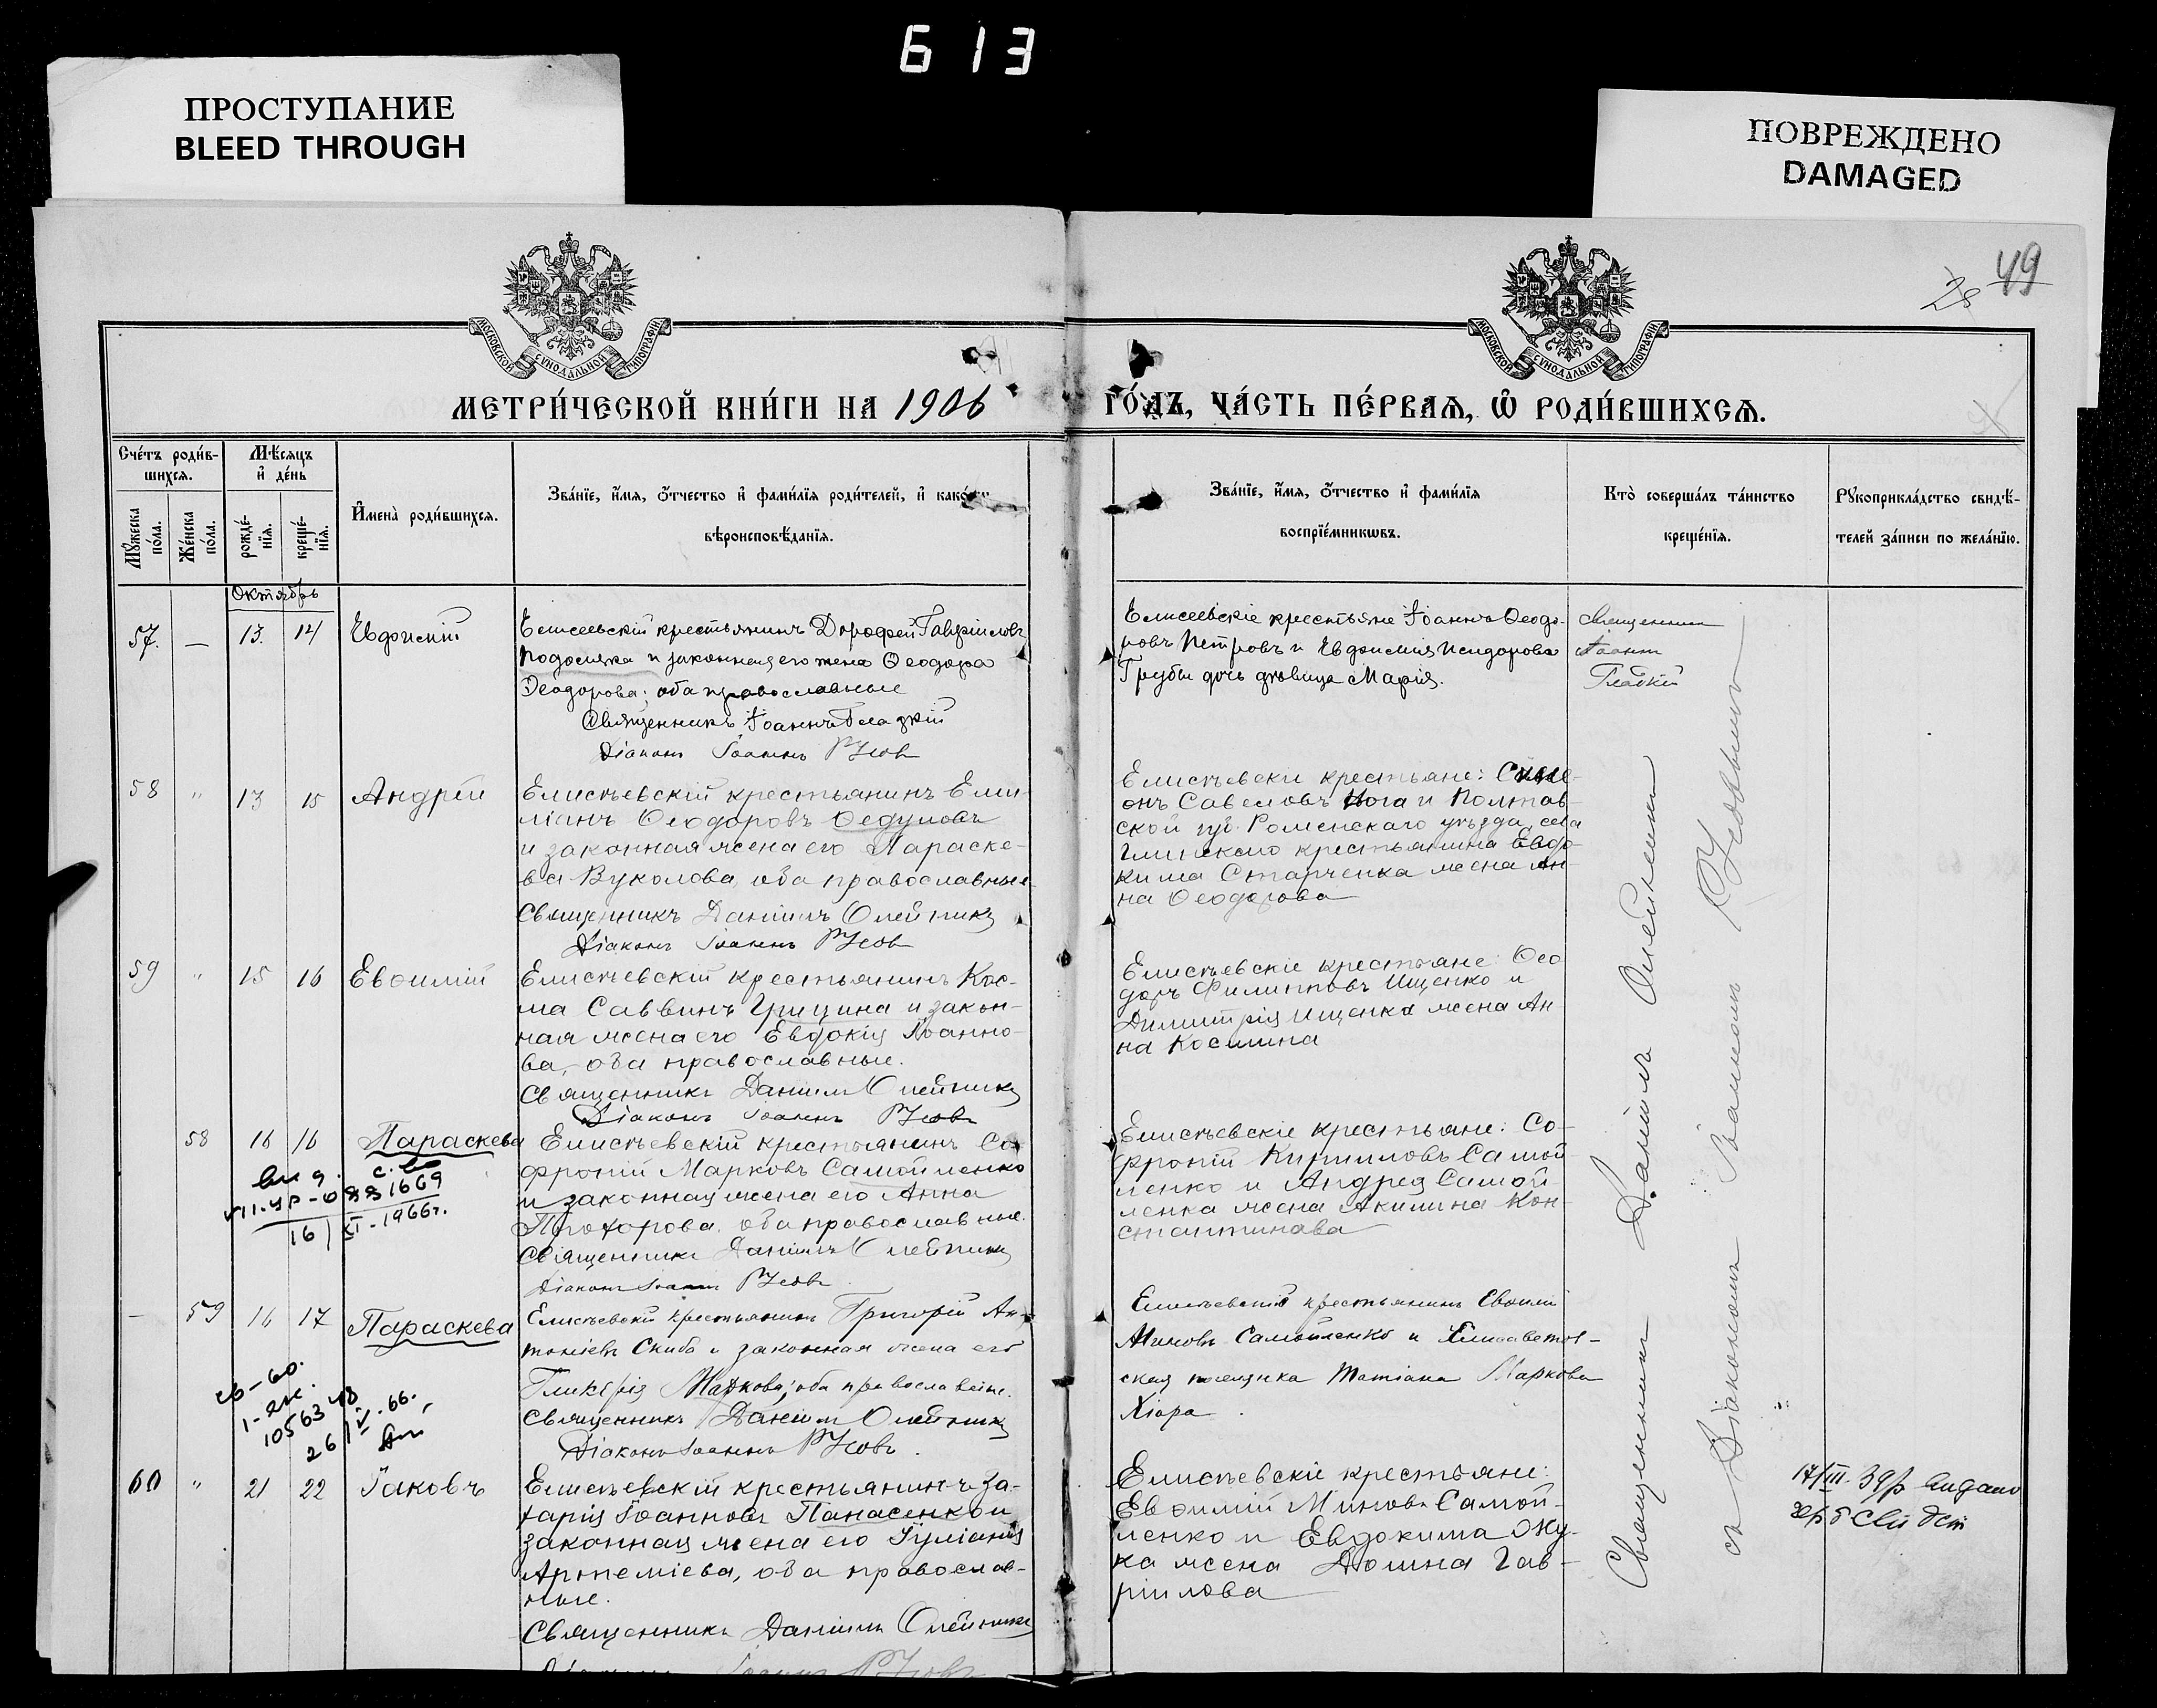 613
ПРОСТУПАНИЕ
BLEED THROUGH
ПОВРЕЖДЕНО
DAMAGED
49
28
МОСКОВСКОЙ СѴНОДАЛЬНОЙ ТИПОГРАФІИ
МОСКОВСКОЙ СѴНОДАЛЬНОЙ ТИПОГРАФІИ
МЕТРИ́ЧЕСКОЙ КНИ́ГИ НА 1906 ГО́ДЪ, ЧА́СТЬ ПЕ́РВАЯ, Ѡ РОДИ́ВШИХСЯ.
Сче́тъ роди́в-
шихся.
Мѣ́сяцъ
и де́нь
Му́жеска
по́ла.
Же́нска
по́ла.
рожде́-
нїя.
креще́-
нїя.
И҆мена̀ роди́вшихся.
Зва́нїе, и҆́мя, о҆́тчество и҆ фами́лїя роди́телей, и҆ како́гѡ
вѣроисповѣ́данїя.
Зва́нїе, и҆́мя, о҆́тчество и҆ фами́лїя
воспрїе́мникѡвъ.
Кто̀ соверша́лъ та́инство
креще́нїя.
Рꙋкоприкла́дство свидѣ́-
телей за́писи по жела́нїю.
Октябрь
57. — 13. 14 Евфимій
Елисеевскій крестьянинъ Дорофей Гавріиловъ
и законная его жена Ѳеодора
Ѳеодорова; оба православные
Священникъ Іоаннъ Гладкій
Діаконъ Іоаннъ Русовъ
Елисеевскіе крестьяне Іоаннъ Ѳеодо-
ровъ Петровъ и Евфимія Исидорова
Грубы дочь дѣвица Марія.
Священникъ
Іоаннъ
Гладкій
58 " 13 15 Андрей
Елисѣевскій крестьянинъ Еми-
ліанъ Ѳеодоровъ Ѳедуловъ
и законная жена его Параске-
ва Вуколова, оба православные
Священникъ Даніилъ Олейникъ
Діаконъ Іоаннъ Русовъ
Елисѣевскіе крестьяне: Симе-
онъ Савеловъ Нога и Полтав-
ской губ. Роменскаго уѣзда, села
Глинскаго крестьянина Евдо-
кима Старченка жена Ан-
на Ѳеодорова
59 " 15 16 Евѳимій
Елисѣевскій крестьянинъ Кос-
ма Саввинъ Грицина и закон-
ная жена его Евдокія Іоанно-
ва, оба православные.
Священникъ Даніилъ Олейникъ
Діаконъ Іоаннъ Русовъ
Елисѣевскіе крестьяне: Ѳео-
доръ Филипповъ Ищенко и
Димитрія Ищенка жена Ан
на Космина
58 16 16 Параскева
Елисѣевскій крестьянинъ Со
фроній Марковъ Самойленко
и законная жена его Анна
Прохорова, оба православные.
Священникъ Даніилъ Олейникъ
Діаконъ Іоаннъ Русовъ
Елисѣевскіе крестьяне: Со-
фроній Кирилловъ Самой
ленко и Андрея Самой-
ленка жена Акилина Кон-
стантинова
VII-УР-0881669
16/XI-1966г.
— 59 16 17 Параскева
Елисѣевскій крестьянинъ Григорій Ан-
тоніевъ Скиба и законная жена его
Гликерія Маркова; оба православные.
Священникъ Даніилъ Олейникъ
Діаконъ Іоаннъ Русовъ.
Елисѣевскій крестьянинъ Евѳимій
Миновъ Самойленко и Елисаветов-
ская Татіана Маркова
Хіора.
св-во.
1-ЯК.
1056348
26/V.66.
60 " 21 22 Іаковъ
Елисѣевскій крестьянинъ За-
харія Іоанновъ Панасенко и
законная жена его Іуліанія
Артеміева, оба православ-
ные.
Священникъ Даніилъ Олейникъ
Іоаннъ Русовъ
Елисѣевскіе крестьяне:
Евѳимій Миновъ Самой-
ленко и Евдокима Жу-
ка жена Домна Гав-
ріилова
Священникъ Даніилъ Олейникъ
съ Діакономъ Іоанномъ Русовымъ
17/III-39р видано